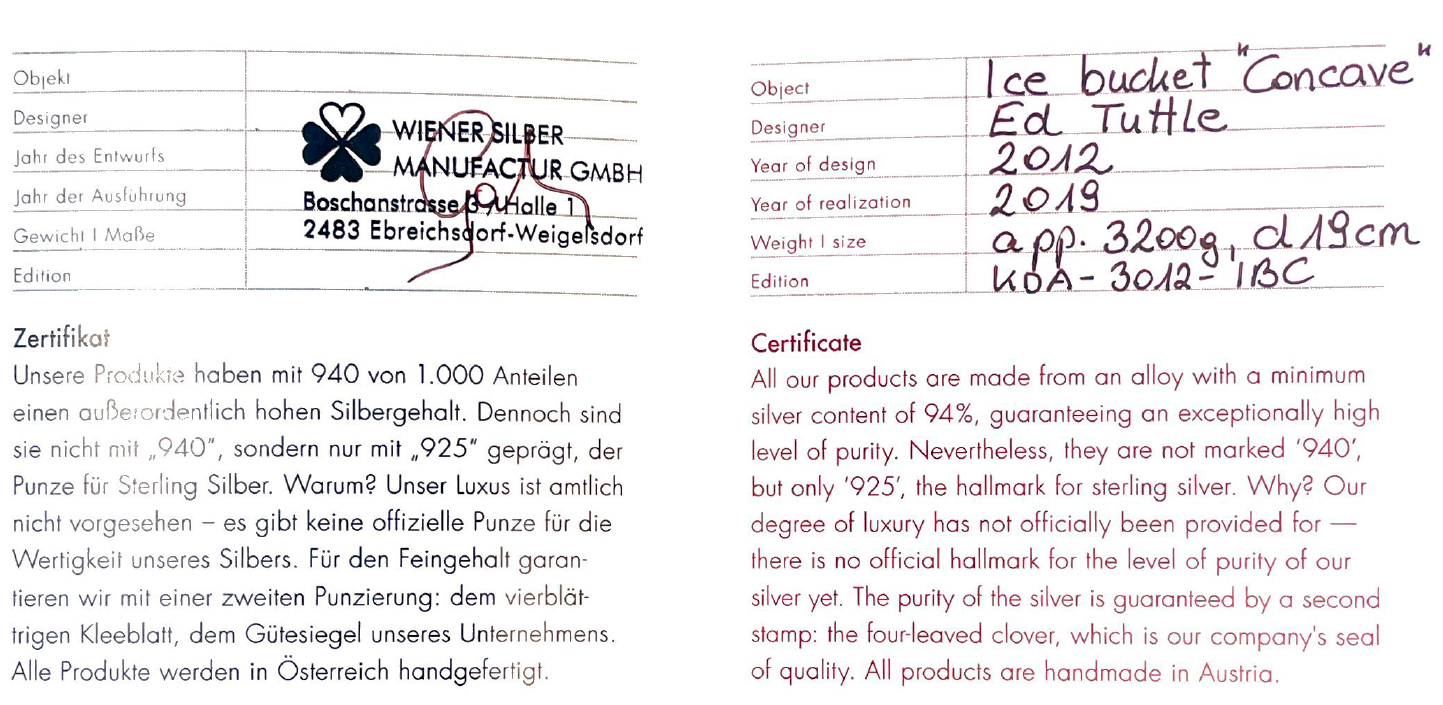 Objekt
Designer
Jahr des Entwurfs
Jahr der Ausführung
Gewicht | Maße
Edition
WIENER SILBER
MANUFACTUR GMBH
Boschanstrasse Halle 1
2483 Ebreichsdorf-Weigelsdorf
Zertifikat
Unsere Produkte haben mit 940 von 1.000 Anteilen
einen außerordentlich hohen Silbergehalt. Dennoch sind
sie nicht mit „940“, sondern nur mit „925“ geprägt, der
Punze für Sterling Silber. Warum? Unser Luxus ist amtlich
nicht vorgesehen – es gibt keine offizielle Punze für die
Wertigkeit unseres Silbers. Für den Feingehalt garan-
tieren wir mit einer zweiten Punzierung: dem vierblät-
trigen Kleeblatt, dem Gütesiegel unseres Unternehmens.
Alle Produkte werden in Österreich handgefertigt.
Object Ice bucket "Concave"
Designer Ed Tuttle
Year of design 2012
Year of realization 2019
Weight | size app. 3200g, d 19cm
Edition KDA-3012-IBC
Certificate
All our products are made from an alloy with a minimum
silver content of 94%, guaranteeing an exceptionally high
level of purity. Nevertheless, they are not marked ‘940’,
but only ‘925’, the hallmark for sterling silver. Why? Our
degree of luxury has not officially been provided for —
there is no official hallmark for the level of purity of our
silver yet. The purity of the silver is guaranteed by a second
stamp: the four-leaved clover, which is our company's seal
of quality. All products are handmade in Austria.